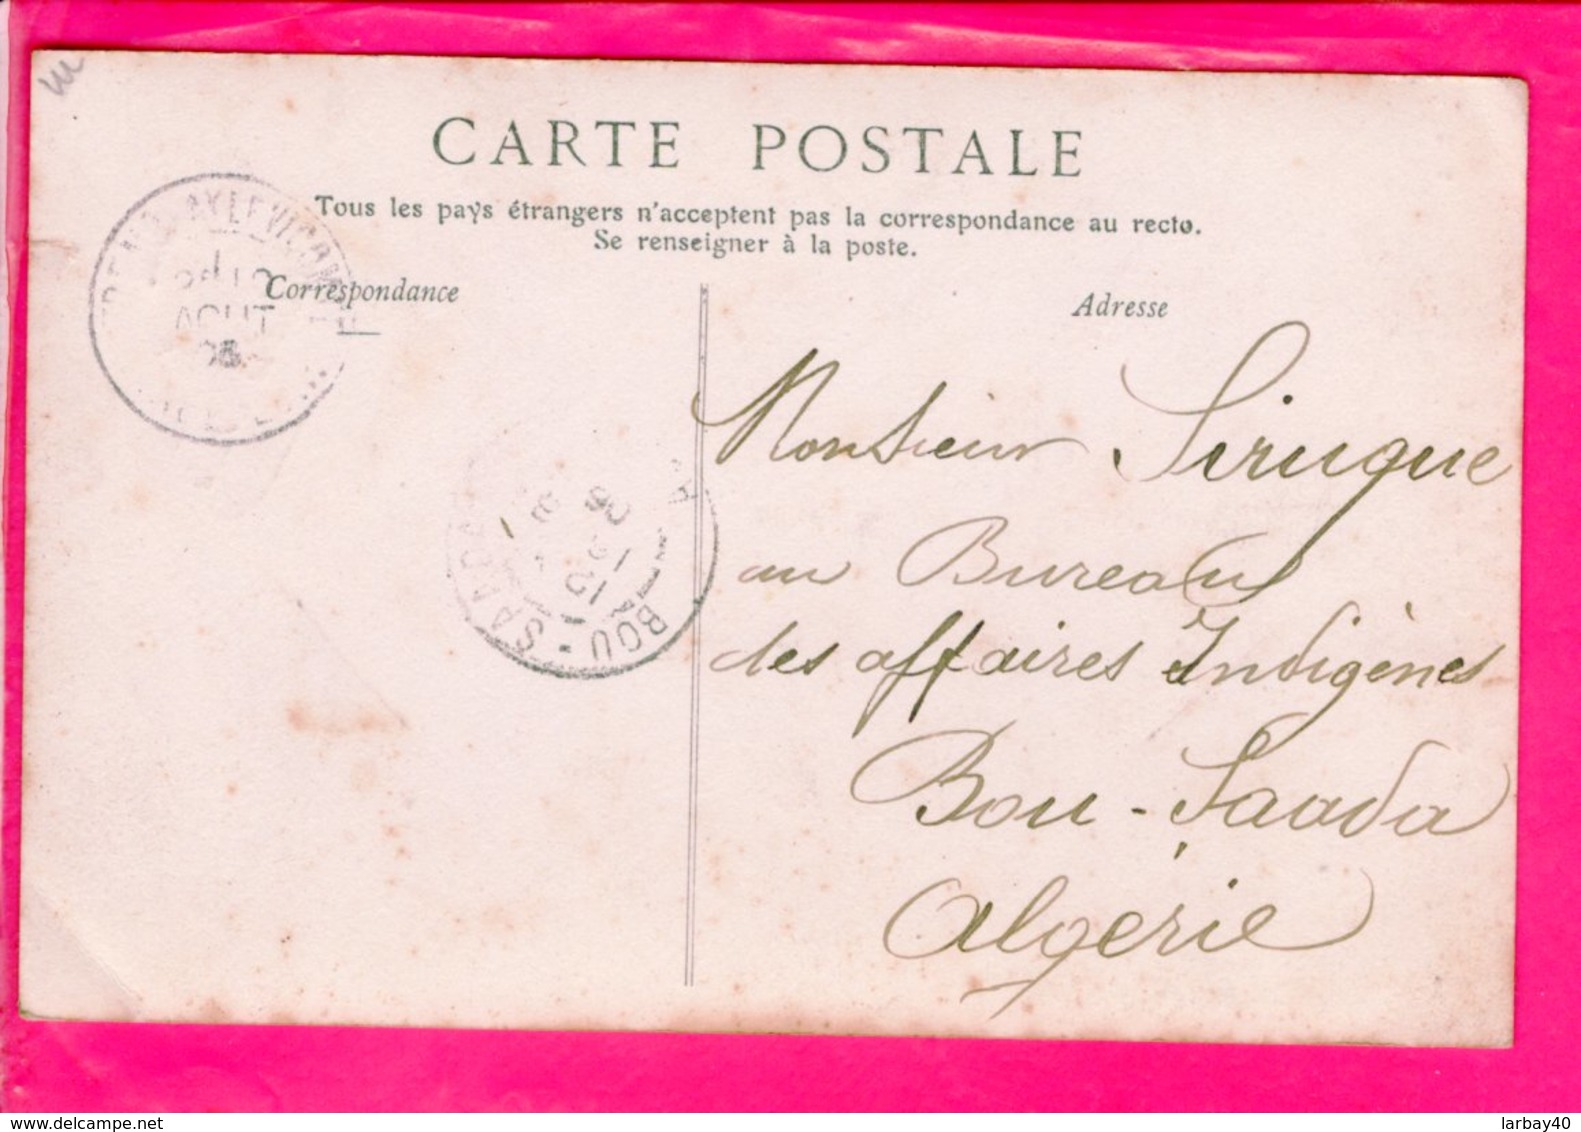 CARTE POSTALE
Tous les pays étrangers n'acceptent pas la correspondance au recto.
Se renseigner à la poste.
Correspondance
Adresse
AOUT
BOU-SAADA
Monsieur Sirugue
au Bureau
des affaires Indigènes
Bou-Saada
Algérie
delcampe.net
larbay40